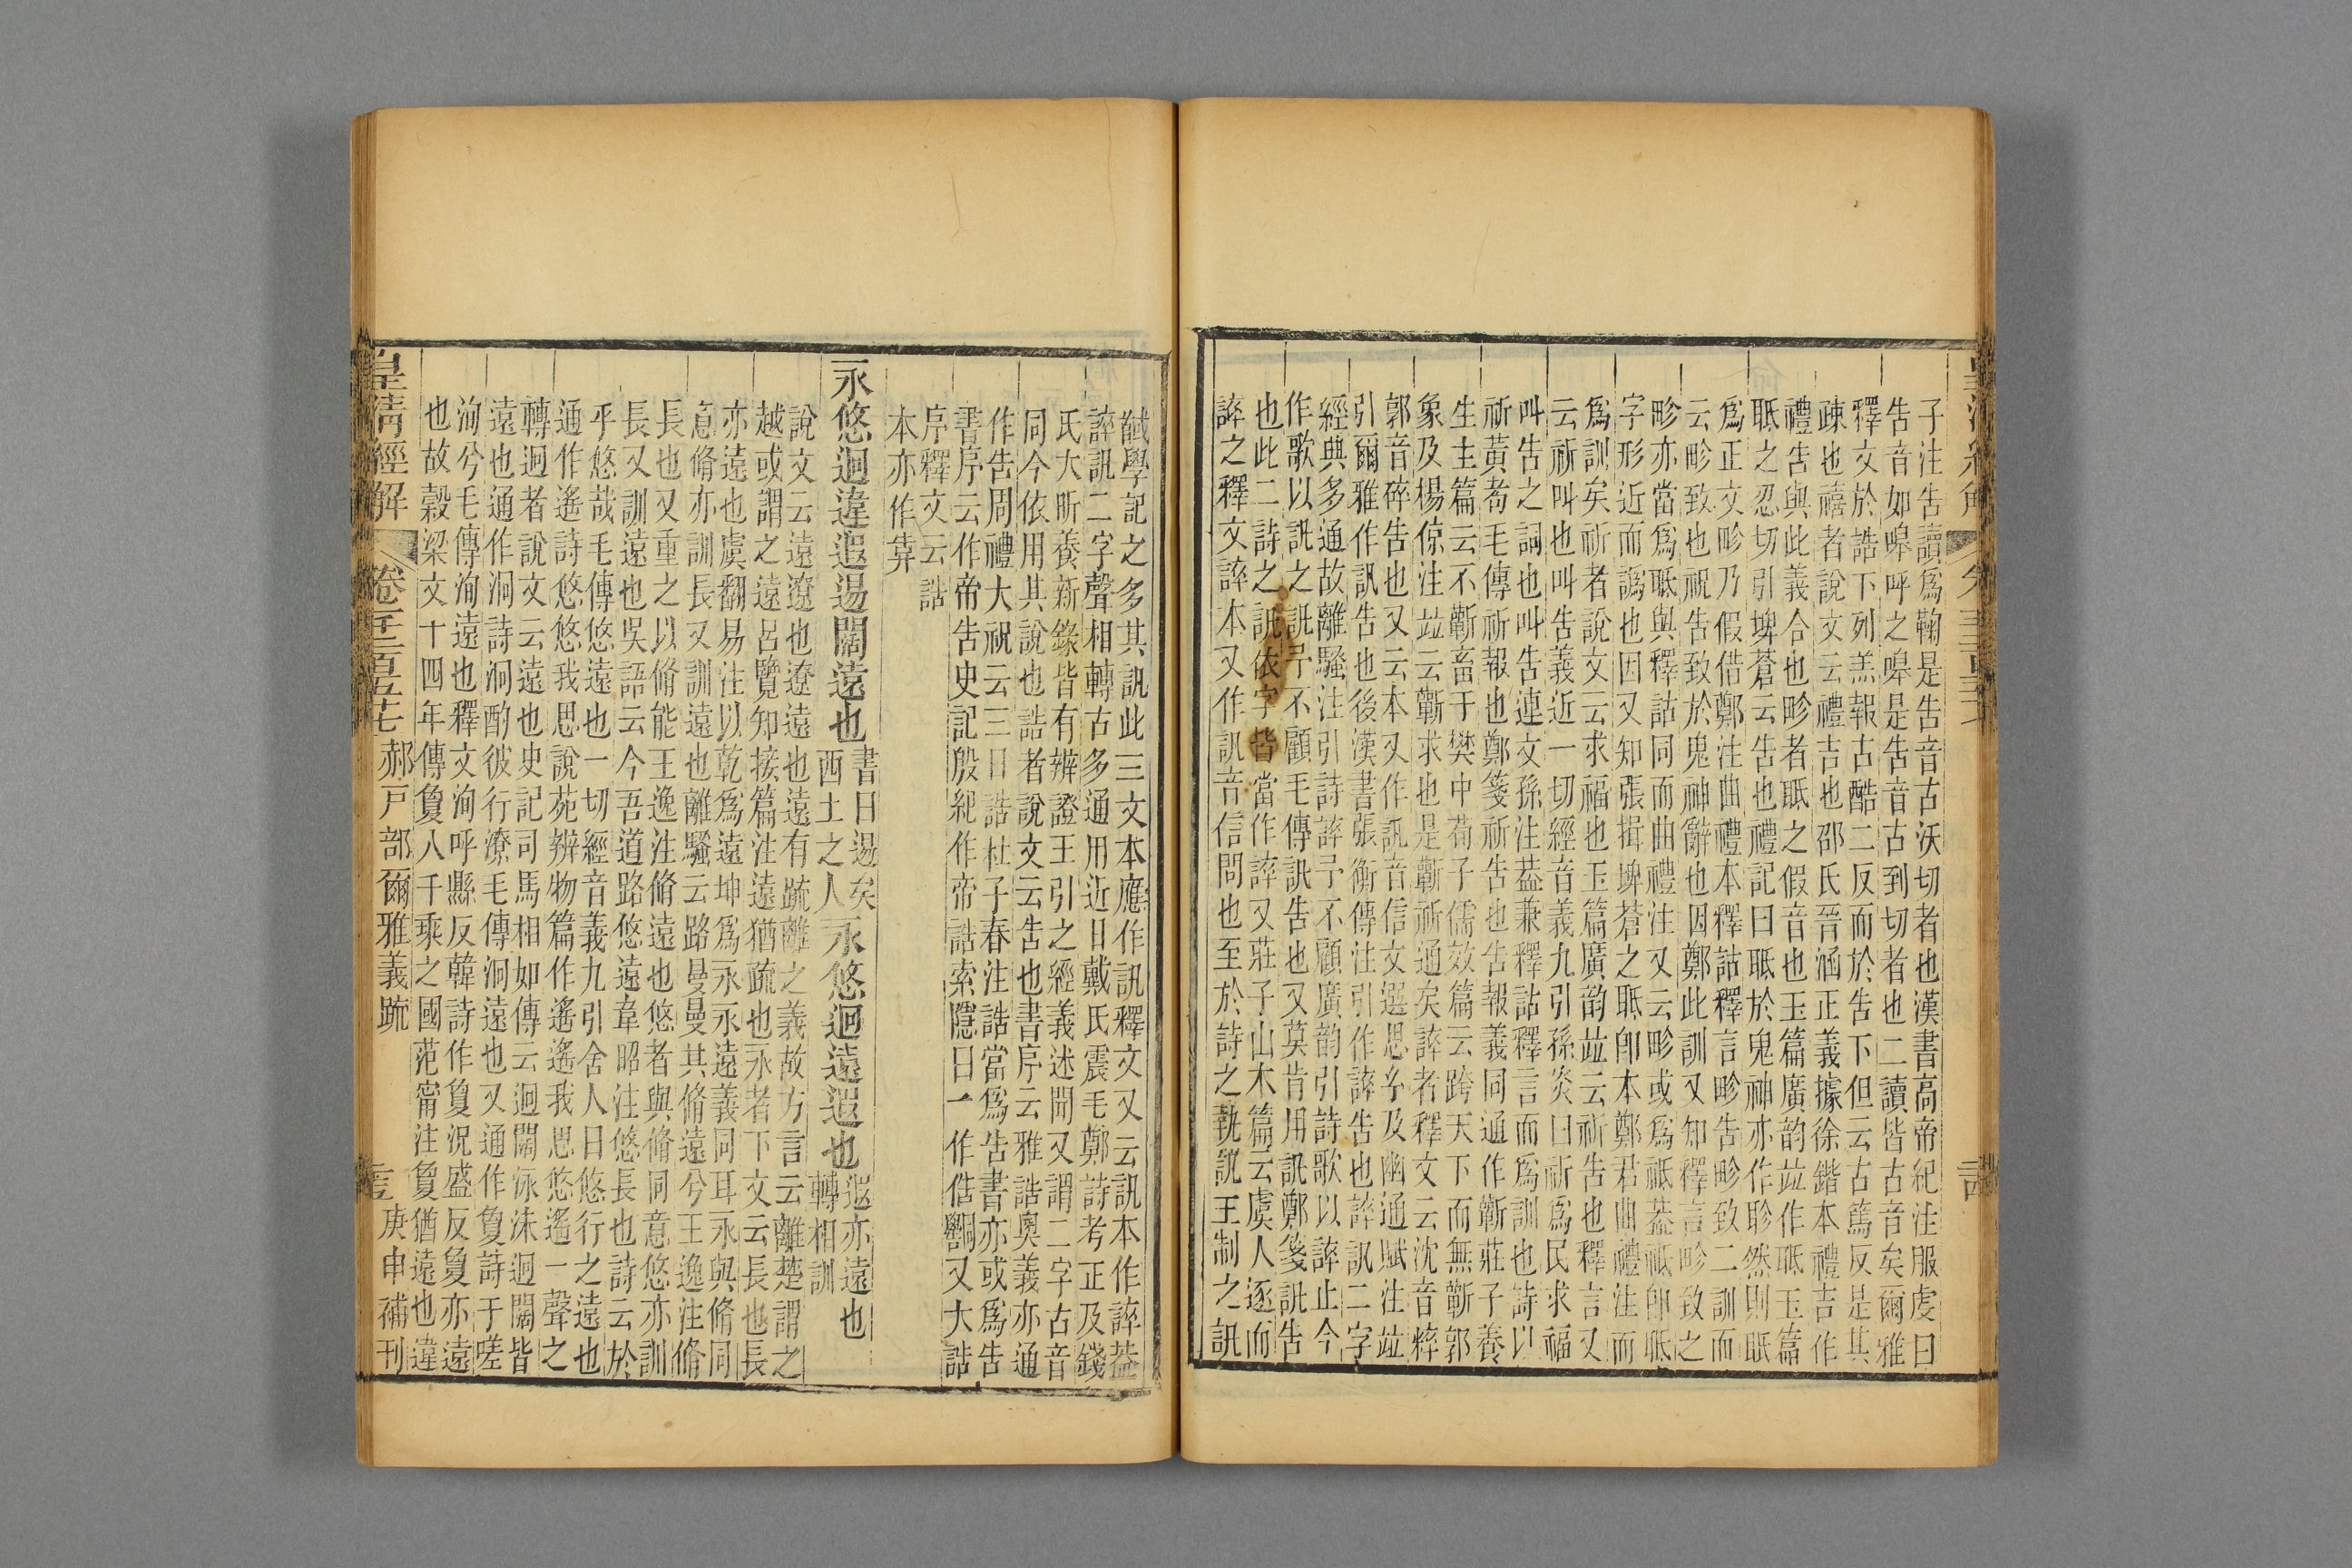 子注告讀爲鞠是告音古沃切者也漢書高帝紀注服虔曰
告音如嘷呼之嘷是告音古到切者也二讀皆古音矣爾雅
釋文於誥下列羔報古酷二反而於告下但云古篤反是其
疎也禧者說文云禮吉也邵氏晉涵正義據徐鍇本禮吉作
禮告與此義合也畛者眂之假音也玉篇廣韵竝作眂玉篇
眂之忍切引埤蒼云告也禮記曰眂於鬼神亦作聄然則眂
爲正文畛乃假借鄭注曲禮本釋詁釋言畛告畛致二訓而
云畛致也祝告致於鬼神辭也因鄭此訓又知釋言畛致之
畛亦當爲眂與釋詁同而曲禮注又云畛或爲祗葢祗卽眂
字形近而譌也因又知張揖埤蒼之眂卽本鄭君曲禮注而
爲訓矣祈者說文云求福也玉篇廣韵竝云祈告也釋言又
云祈叫也叫告義近一切經音義九引孫炎曰祈爲民求福
叫告之詞也叫告連文孫注葢兼釋詁釋言而爲訓也詩以
祈黃耇毛傳祈報也鄭箋祈告也告報義同通作蘄莊子養
生主篇云不蘄畜于樊中荀子儒效篇云跨天下而無蘄郭
象及楊倞注竝云蘄求也是蘄祈通矣誶者釋文云沈音粹
郭音碎告也又云本又作訊音信文選思𤣥及幽通賦注竝
引爾雅作訊告也後漢書張衡傳注引作誶告也誶訊二字
經典多通故離騷注引詩誶予不顧廣韵引詩歌以誶止今
作歌以訊之訊予不顧毛傳訊告也又莫肯用訊鄭箋訊告
也此二詩之訊依字皆當作誶又莊子山木篇云虞人逐而
誶之釋文誶本又作訊音信問也至於詩之執訊王制之訊
馘學記之多其訊此三文本應作訊釋文又云訊本作誶葢
誶訊二字聲相轉古多通用近日戴氏震毛鄭詩考正及錢
氏大昕養新錄皆有辨證王引之經義述聞又謂二字古音
同今依用其說也誥者說文云告也書序云雅誥奧義亦通
作告周禮大祝云三曰誥杜子春注誥當爲告書亦或爲告
書序云作帝告史記殷紀作帝誥索隱曰一作俈嚳又大誥
序釋文云誥
本亦作𢍎
永悠迥違遐逷闊遠也書曰逷矣西土之人永悠迥遠遐也遐亦遠也轉相訓
說文云遠遼也遼遠也遠有疏離之義故方言云離楚謂之
越或謂之遠呂覽知接篇注遠猶疏也永者下文云長也長
亦遠也虞翻易注以乾爲遠坤爲永永遠義同耳永與脩同
意脩亦訓長又訓遠也離騷云路曼曼其脩遠兮王逸注脩
長也又重之以脩能王逸注脩遠也悠者與脩同意悠亦訓
長又訓遠也吳語云今吾道路悠遠韋昭注悠長也詩云於
乎悠哉毛傳悠遠也一切經音義九引舍人曰悠行之遠也
通作遙詩悠悠我思說苑辨物篇作遙遙我思悠遙一聲之
轉迥者說文云遠也史記司馬相如傳云迥闊泳沬迥闊皆
遠也通作泂詩泂酌彼行潦毛傳泂遠也又通作夐詩于嗟
洵兮毛傳洵遠也釋文洵呼縣反韓詩作夐況盛反夐亦遠
也故穀梁文十四年傳夐八千乘之國范甯注夐猶遠也違
皇淸經解
卷千二百五十七
郝戸部爾雅義疏
庚申補刊